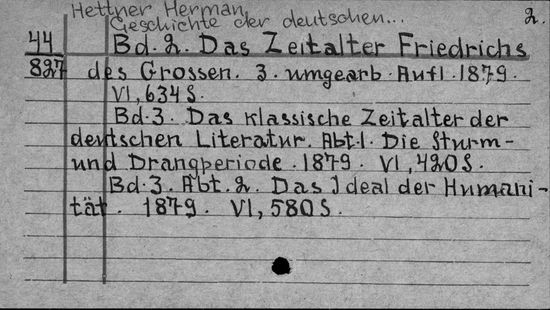 Hettner Herman
Geschichte der deutschen... 2.
44 Bd. 2. Das Zeitalter Friedrichs
827 des Grossen. 3. umgearb. Aufl. 1879.
VI, 634 S.
Bd. 3. Das klassische Zeitalter der
deutschen Literatur. Abt. 1. Die Sturm-
und Drangperiode. 1879. VI, 420 S.
Bd. 3. Abt. 2. Das Ideal der Humani-
tät. 1879. VI, 580 S.